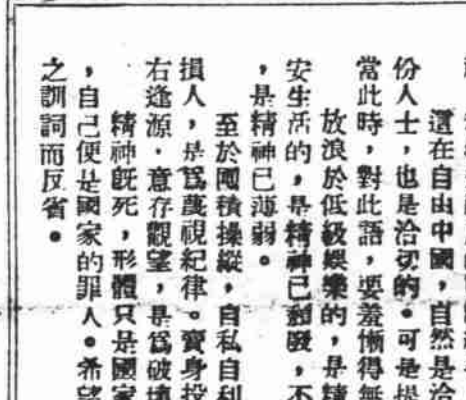 還在自由中國，自然是洽
份人士，也是洽切的。可是提
當此時，對此語，要羞慚得無
放浪於低級娛樂的，是精
安生活的，是精神已
，不
，是精神已薄弱。
至於囤積操縱，自私自利
損人，是爲蔑視紀律。賣身投
右逢源．意存觀望，是爲破壞
精神旣死，形體只是國家
，自己便是國家的罪人。希望
之訓詞而反省。